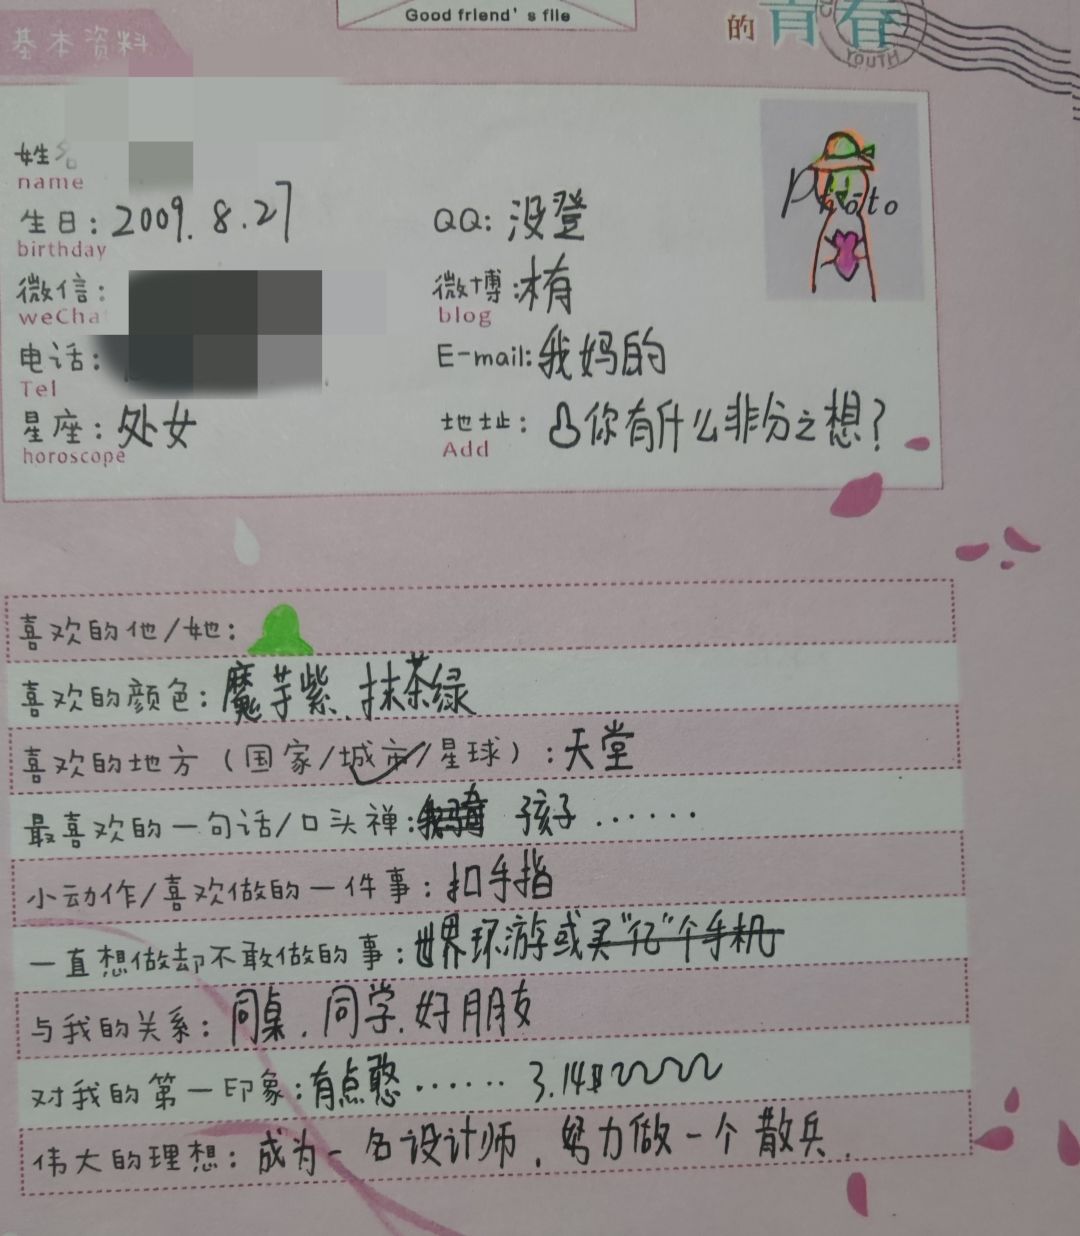 Good friend's file
的青春
YOUTH
基本资料
姓名
name
生日：2009.8.27
birthday
QQ：没登
微信：
weCha
微博：木有
blog
电话：
Tel
E-mail：我妈的
星座：处女
horoscope
地址：你有什么非分之想？
Add
Photo
喜欢的他/她：
喜欢的颜色：魔芋紫、抹茶绿
喜欢的地方（国家/城市/星球）：天堂
最喜欢的一句话/口头禅： 孩子……
小动作/喜欢做的一件事：扣手指
一直想做却不敢做的事：世界环游或买“亿”个手机
与我的关系：同桌、同学、好朋友
对我的第一印象：有点憨…… 3.14
伟大的理想：成为一名设计师，努力做一个散兵.